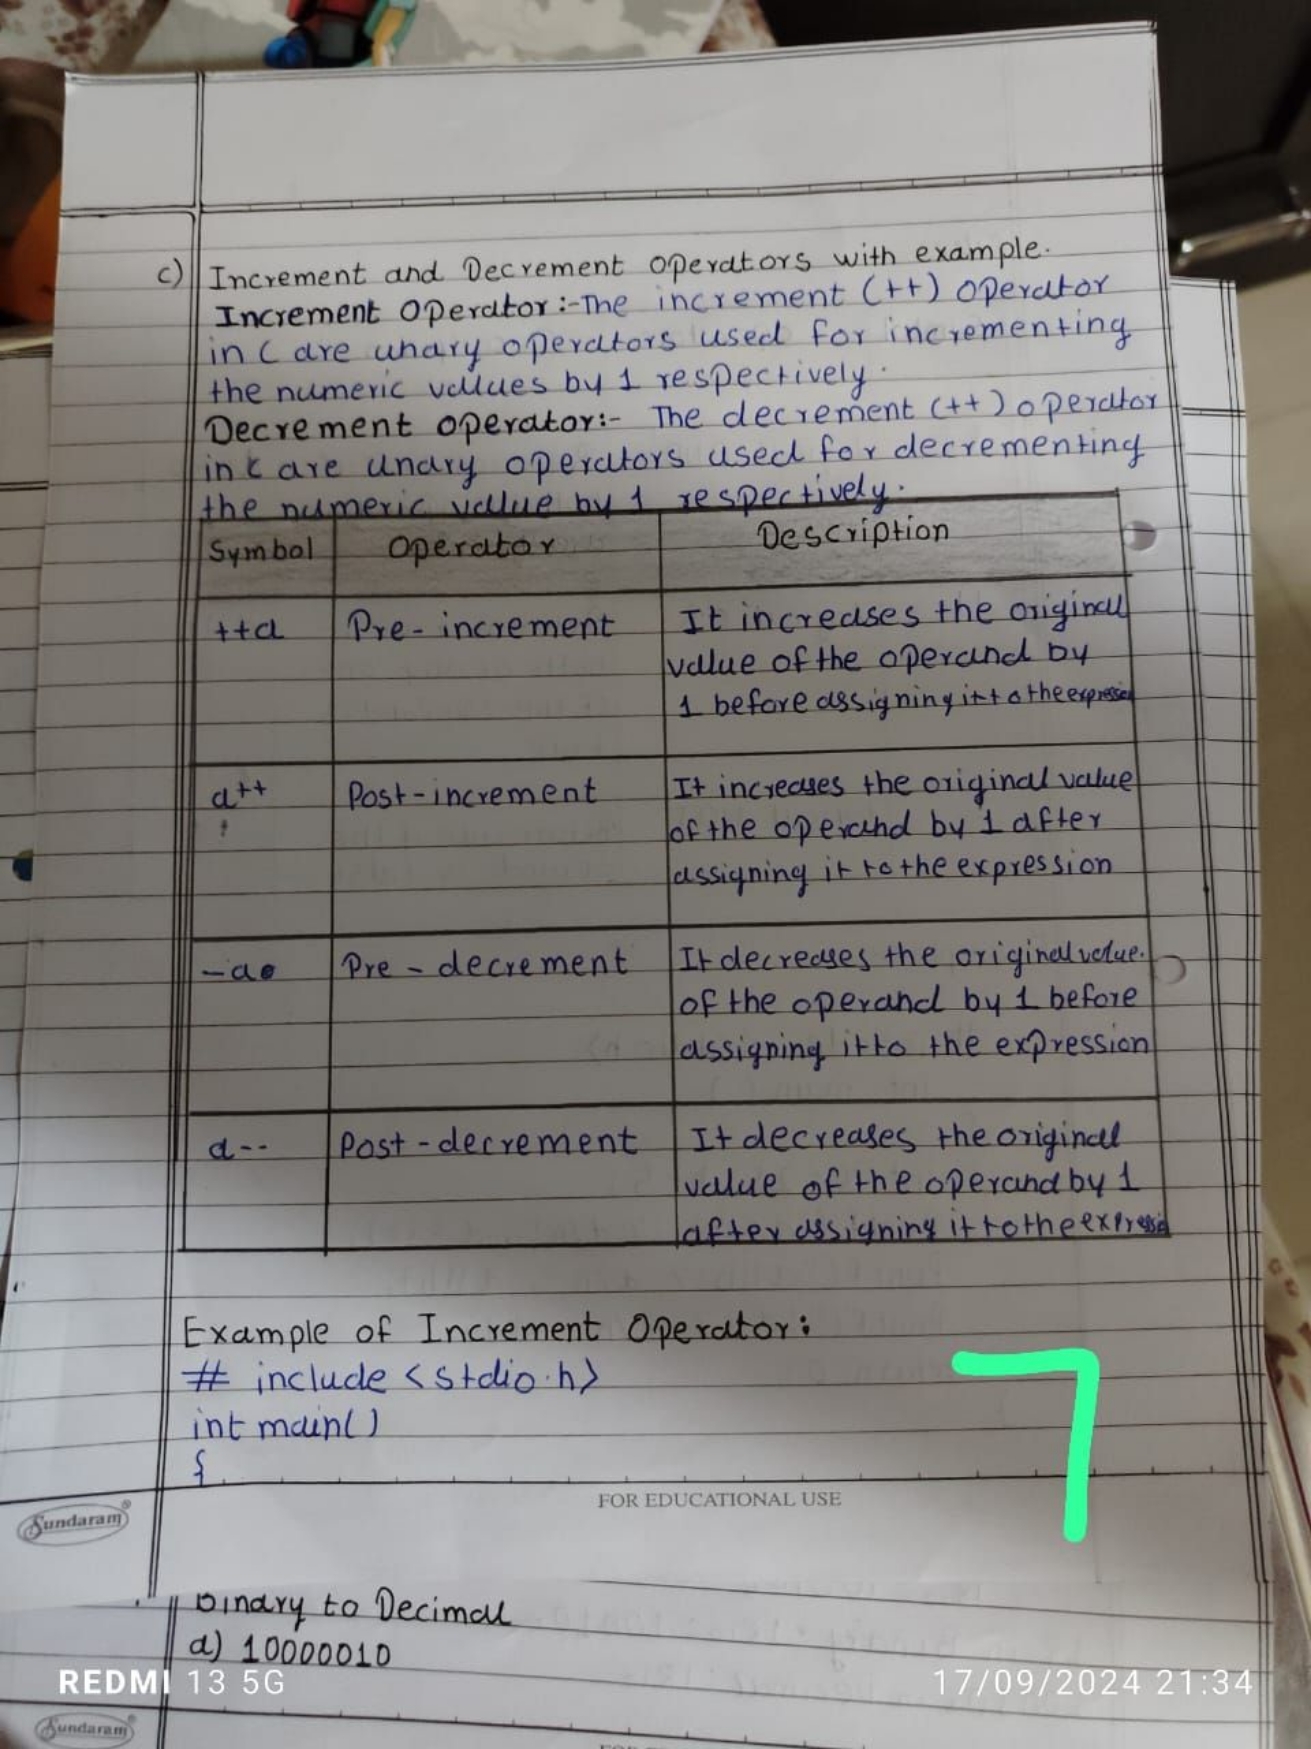 c) Increment and Decrement operators with example.
Increment Operator:-The increment (++) operator
in C are unary operators used for incrementing
the numeric values by 1 respectively.
Decrement operator:- The decrement (++) operator
in C are unary operators used for decrementing
the numeric value by 1 respectively.
Symbol Operator Description
++a Pre-increment It increases the original
value of the operand by
1 before assigning it to the
a++ Post-increment It increases the original value
of the operand by 1 after
assigning it to the expression
-a Pre-decrement It decreases the original value.
of the operand by 1 before
assigning it to the expression
a-- Post-decrement It decreases the original
value of the operand by 1
after assigning it to the
Example of Increment Operator:
# include <stdio.h>
int main()
{
7
FOR EDUCATIONAL USE
Sundaram
Binary to Decimal
a) 10000010
REDMI 13 5G
17/09/2024 21:34
Sundaram